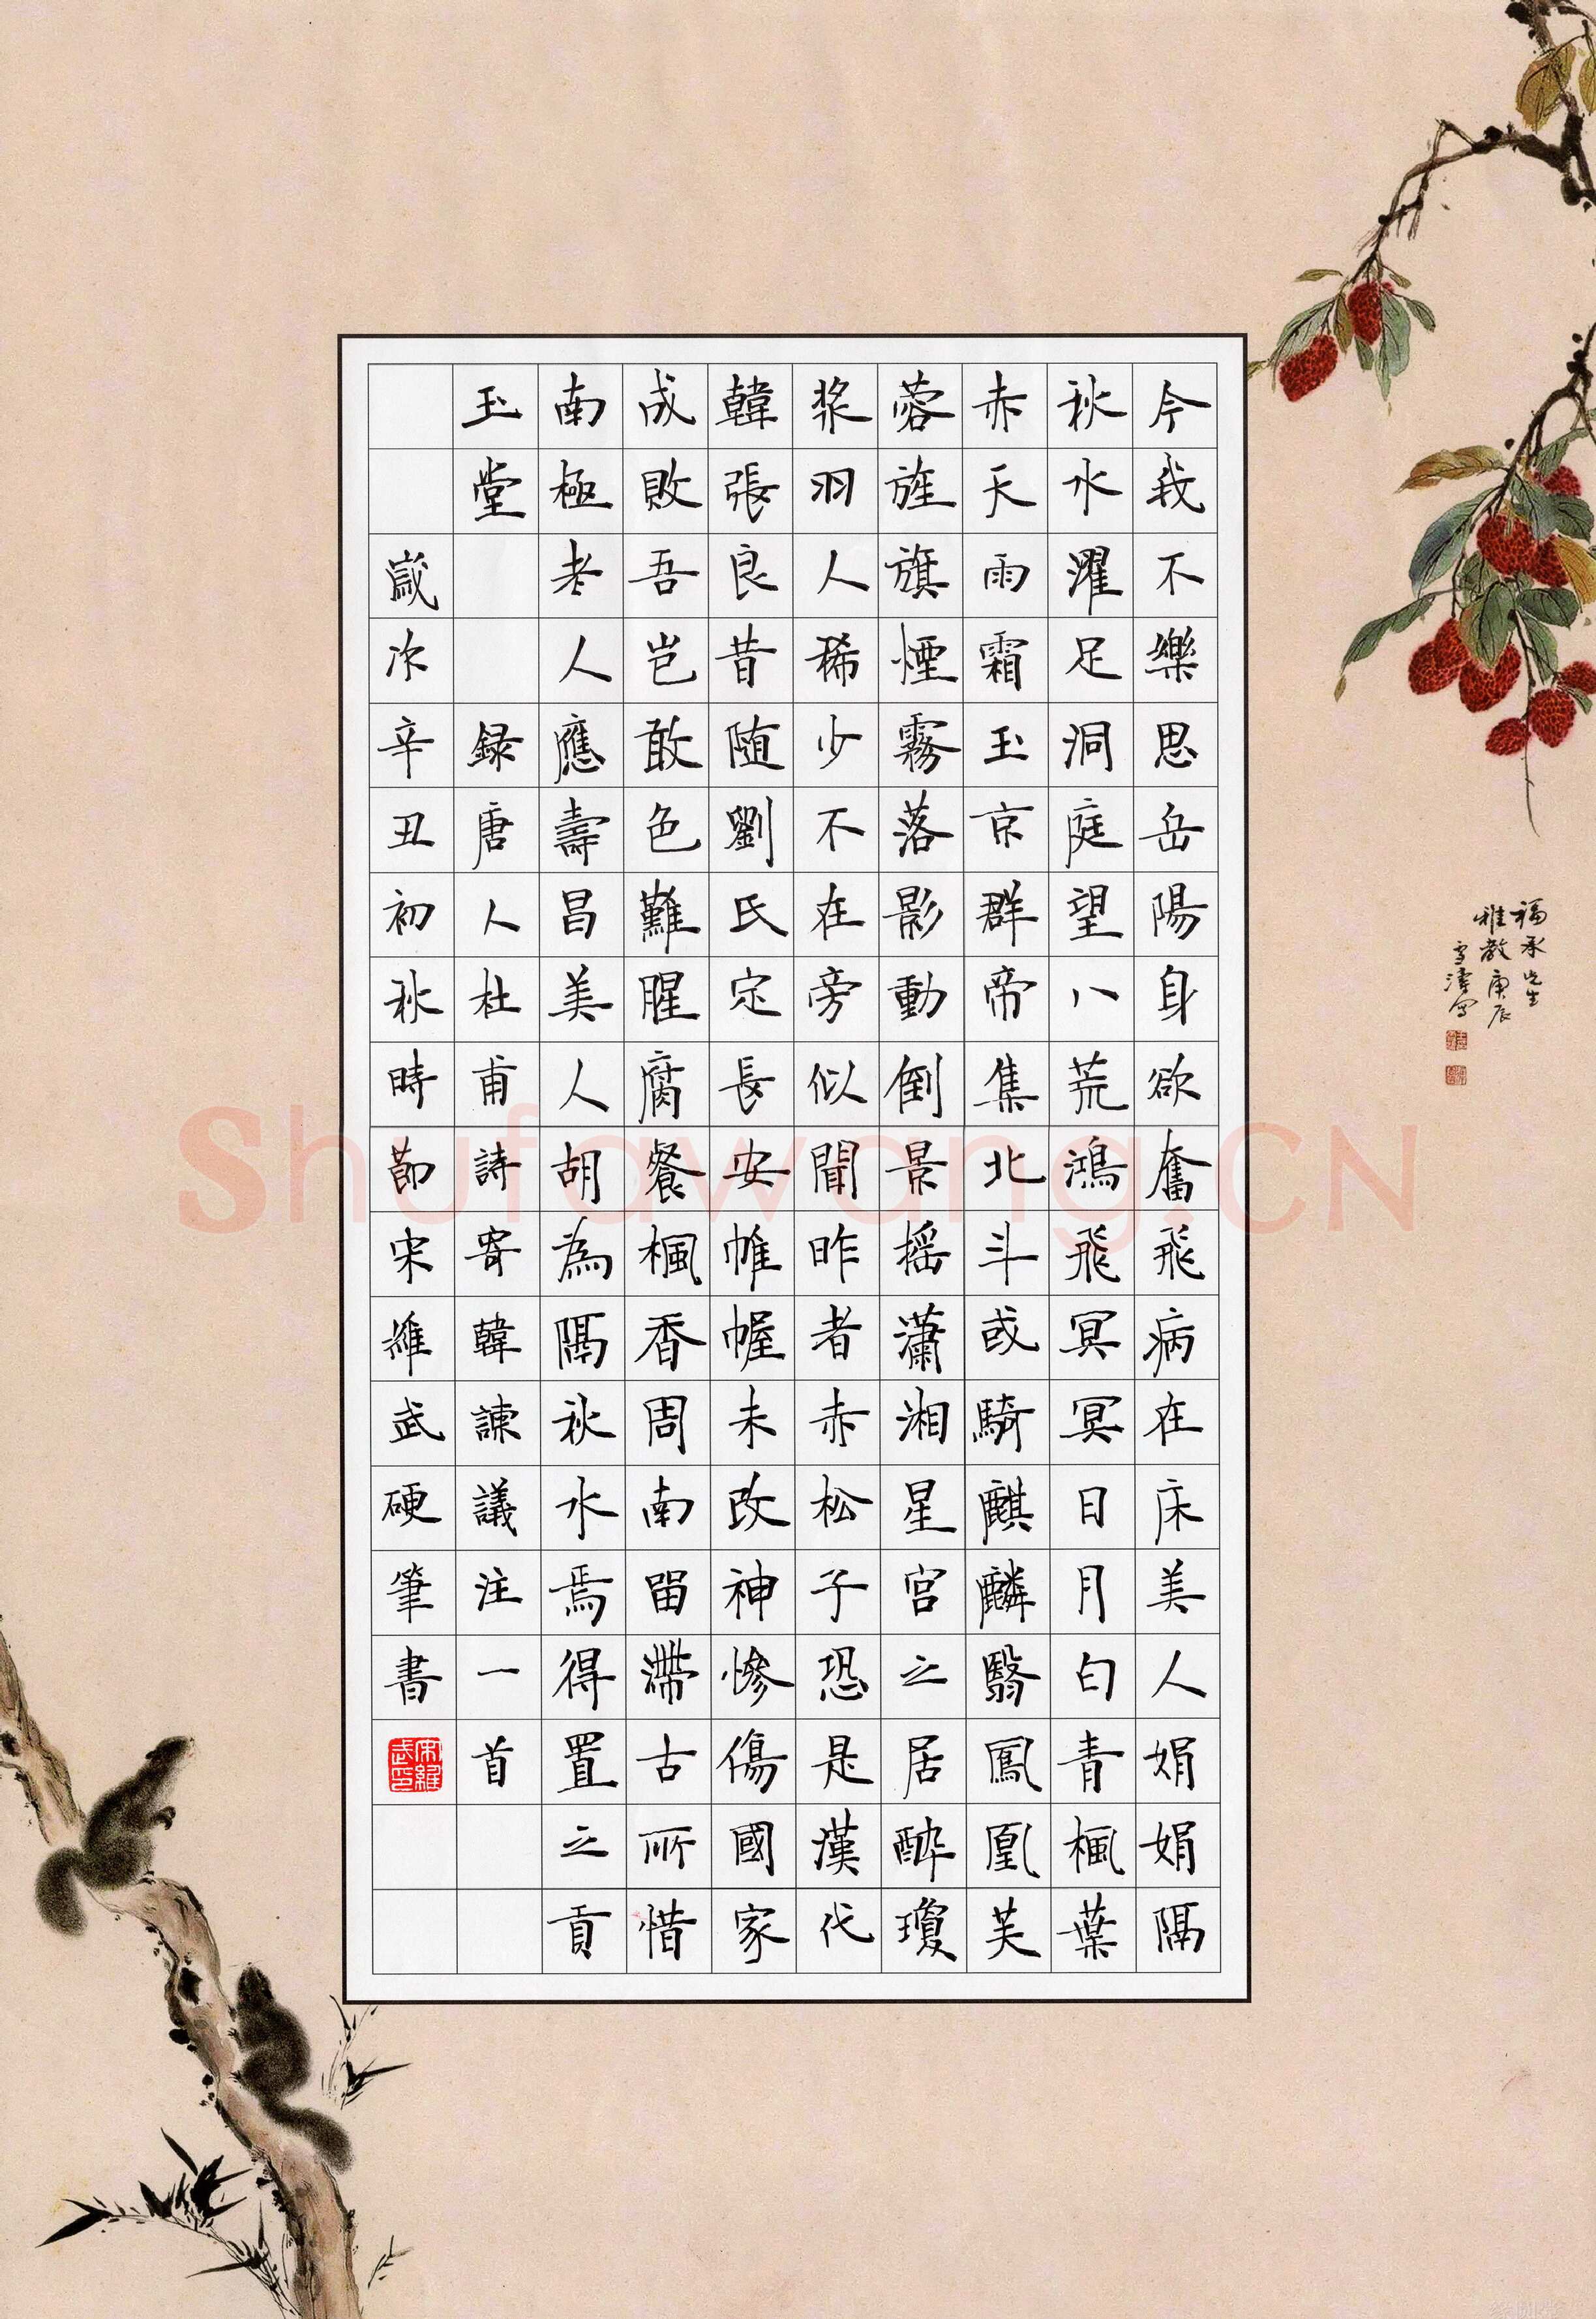 今我不樂思岳陽身欲奮飛病在床美人娟娟隔
秋水濯足洞庭望八荒鴻飛冥冥日月白青楓葉
赤天雨霜玉京群帝集北斗或騎麒麟翳鳳凰芙
蓉旌旗煙霧落影動倒景摇瀟湘星宫之居醉瓊
漿羽人稀少不在旁似聞昨者赤松子恐是漢代
韓張良昔随劉氏定長安帷幄未改神慘傷國家
成敗吾豈敢色難腥腐餐楓香周南留滯古所惜
南極老人應壽昌美人胡為隔秋水焉得置之貢
玉堂 録唐人杜甫詩寄韓諫議注一首
歲次辛丑初秋時節宋維武硬筆書
宋維武印
福承先生
雅教庚辰
雪濤寫
Shufawang.CN